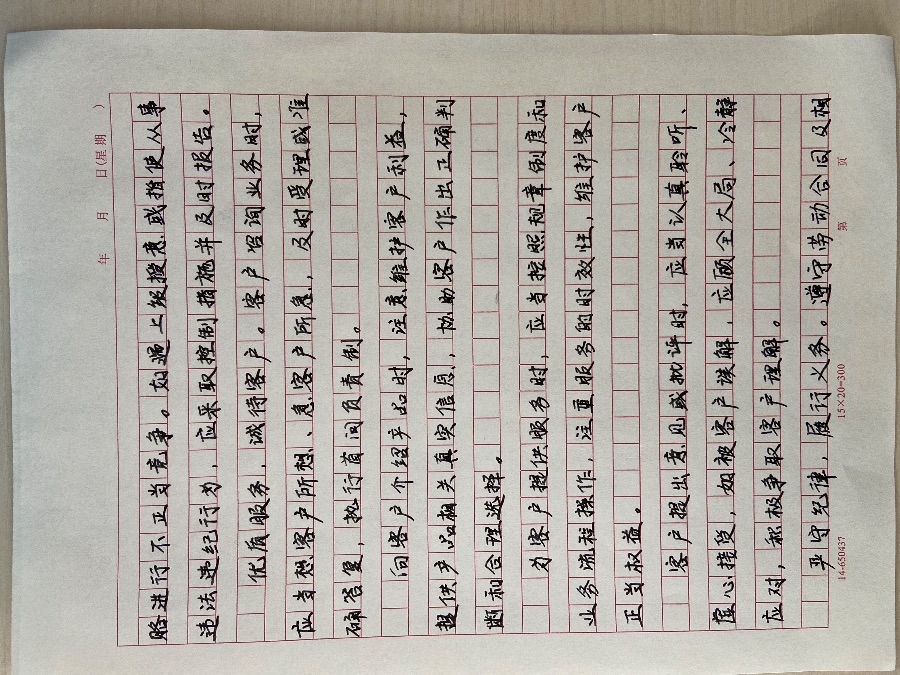 年 月 日(星期 )
赂进行不正当竞争。如遇上级授意或指使从事
违法违纪行为，应采取控制措施并及时报告。
优质服务，诚待客户。客户咨询业务时，
应当想客户所想、急客户所急，及时受理或准
确答复，执行首问负责制。
向客户介绍产品时，注意维护客户利益，
提供产品相关真实信息，协助客户作出正确判
断和合理选择。
为客户提供服务时，应当按照规章制度和
业务流程操作，注重服务的时效性，维护客户
正当权益。
客户提出意见或批评时，应当认真聆听、
虚心接受，如被客户误解，应顾全大局、冷静
应对，积极争取客户理解。
严守纪律，履行义务。遵守劳动合同及相
14-650437 15×20=300 第 页